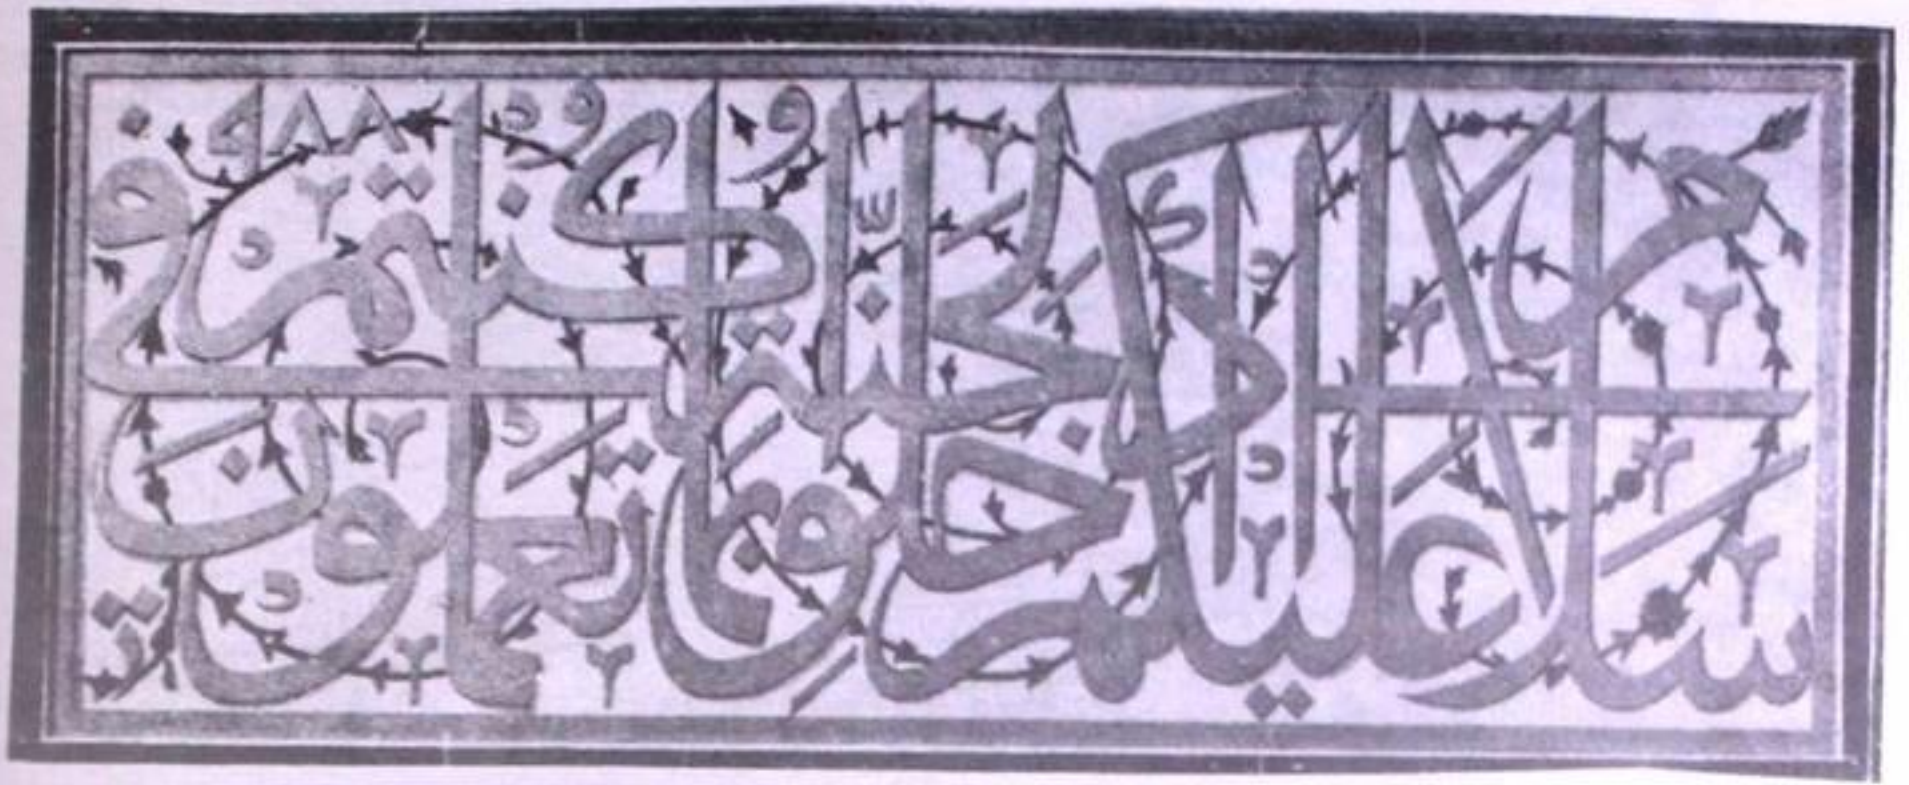 سلام عليكم ادخلوا الجنة بما كنتم تعملون